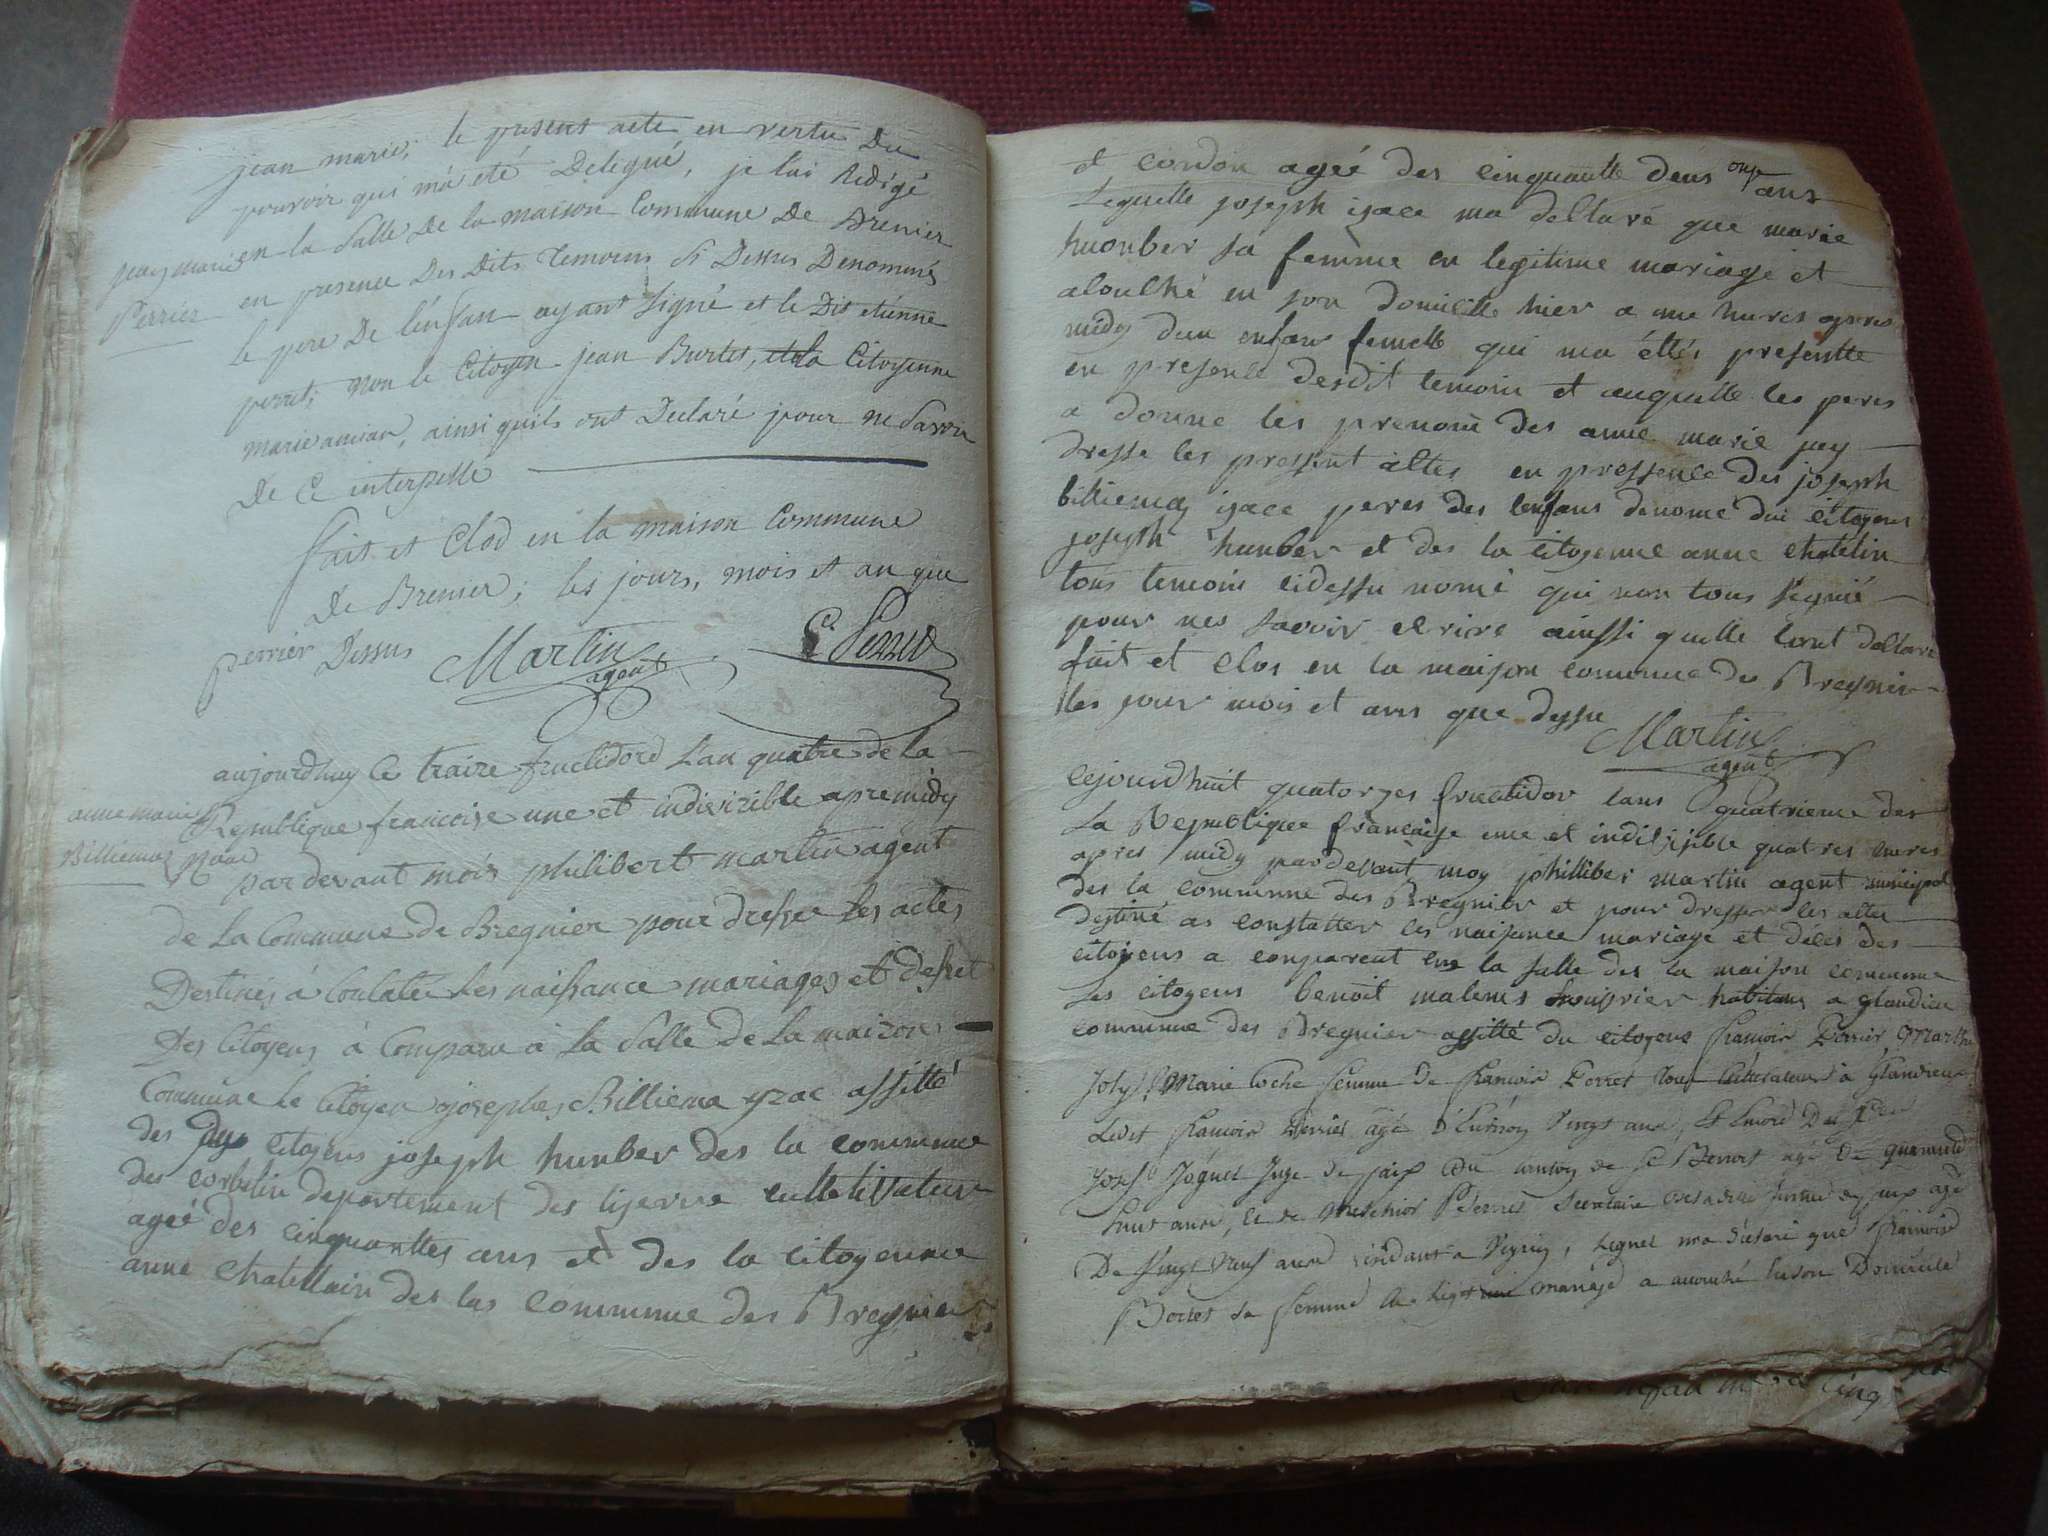 jean marie, le present acte en vertu Du
pouvoir qui m'a été Delegué, je l'ai Redigé
en la Salle De la maison Commune De Brenier
jean marie
Perrier
en presence Des Dits Temoins Si Dessus Denommés
le pere De l'enfan ayant Signé et le Dit etienne
perret, non le Citoyen jean Burtet, et la Citoyenne
marie ancian, ainsi quils ont Declaré pour ne Savoir
De Ce interpelle
fait et Clod en la maison Commune
De Brenier; les jours, mois et an que
perrier Dessus Martin agent
aujourdhuy le traize fructidord L'an quatre de la
anne marie
Billiemaz yzaac
Republique francoise une et indivizible apremidy
par devant mois philibert martin agent
de La Commune de Bregnier pour dresser les actes
Destinés à Conlater les naissance mariages et desset
Des Citoyens à Comparu à La Salle De La maizon
Commune Le Citoyen josephe Billiema yzac assitté
des citoyens joseph hunber des la commune
des corbelin departement des liserre culltivateur
ageé des cinquanttes ans et des la citoyenne
anne chatellain des las commune des Bregnier
et cordon ageé des cinquantte deus ans
Lequelle joseph isace ma decllaré que marie
huonber sa femme en legitime mariage et
aloulhé en son domicille hier a une hures apres
midy dun enfans femelle qui ma éttés presentte
en presence desdit temoin et auquelle les peres
a donne les prenom des anne marie jay
dresse les pressent altes en pressence des joseph
billiemaz isace peres des lenfans denomé dui citoyens
joseph hunber et des la citoyenne anne chatelin
tous temoin cidessu nomé qui non tous segnié
pour nes savoir elrire ainssi quelle lont decllaré
fait et clos en la maison commune des Bregnier
les jour mois et ans que dessu Martin
agent
cejourdhuit quatorzes fructidor lans quatrieme des
La Republique française une et indivisible quatres hures
apres midy pardevant moy philliber martin agent municipal
des la commune des Bregnier et pour dresser les altes
destiné as constatter les naisance mariage et décés des
citoyens a conparent en la salle des la maison commune
Les citoyens benoit habitans a glandieu
commune des Bregnier assitté du citoyens francois Perrier
Marie Coche femme de francois Perret a Glandieu
Ledit francois Perrier agé Vingt ans,
Joseph Juge de paix du canton de St Benoit agé de quarante
huit ans, et de Melchior Perret Secretaire
De Vingt neuf ans, Lequel ma declaré que francoise
sa femme en legitime mariage a accouché En son Domicile